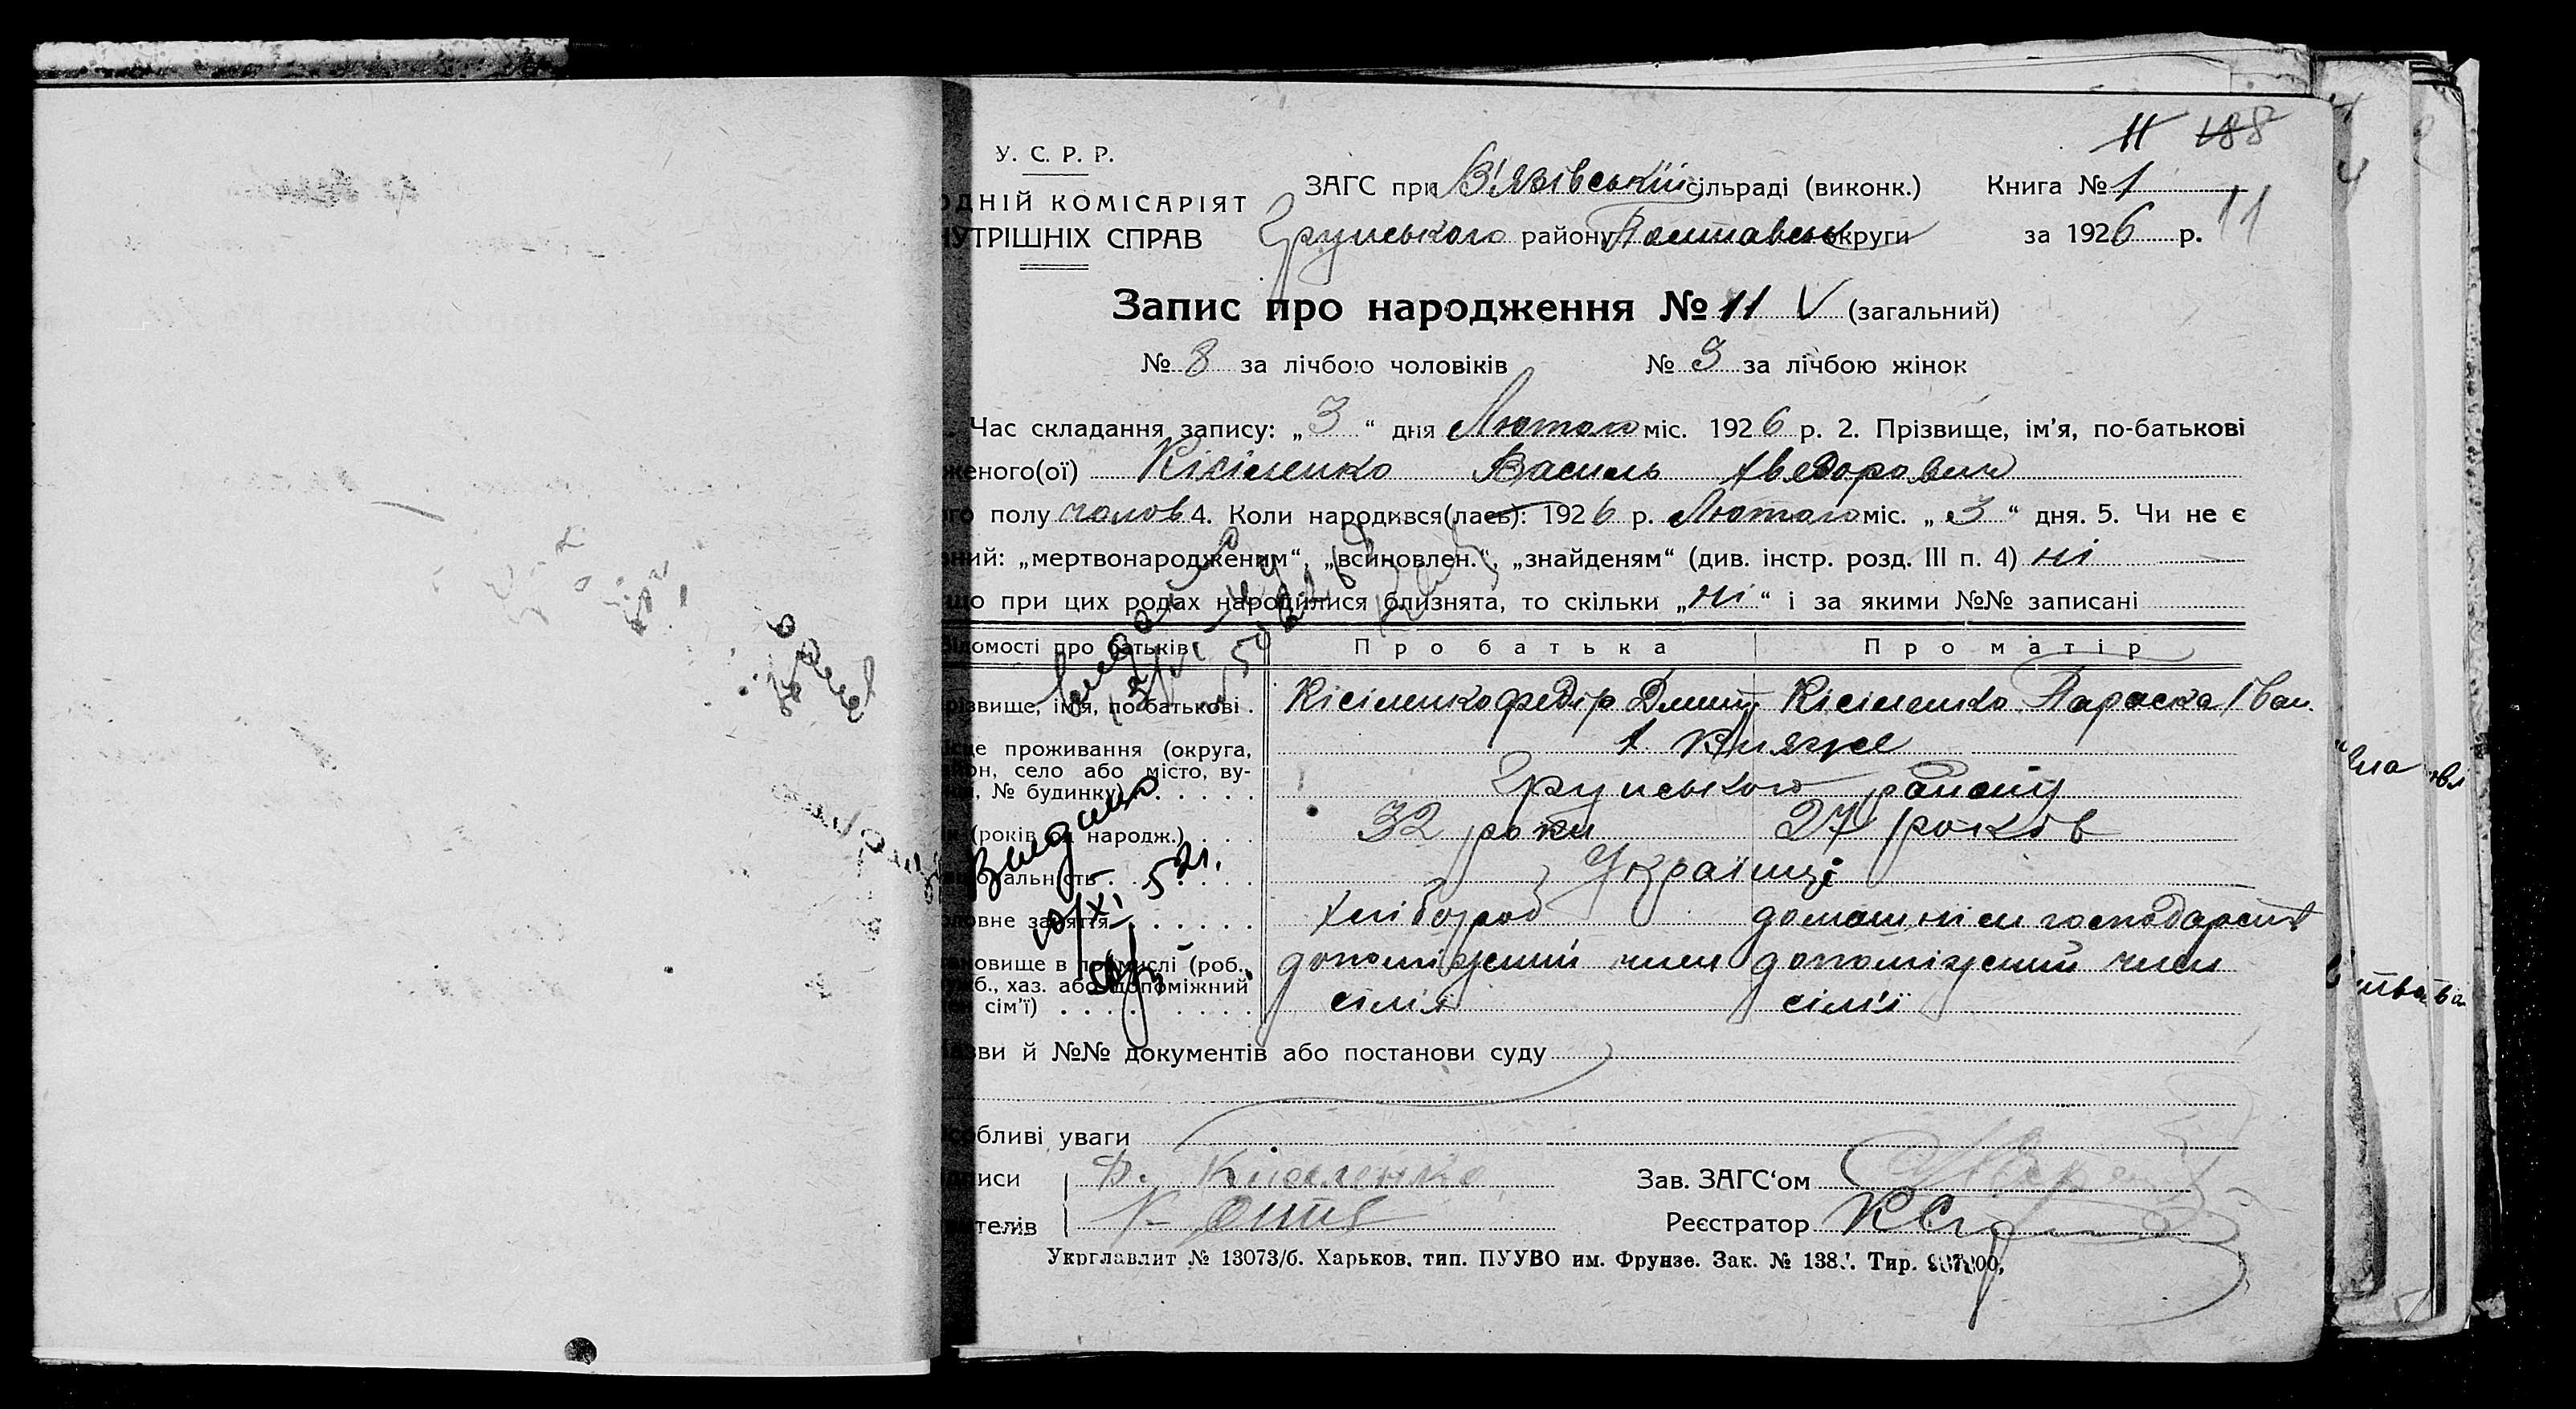 11 188
У. С. Р. Р.
ЗАГС при В'язівській сільраді (виконк.) Книга № 1
ОДНІЙ КОМІСАРІЯТ
11
УТРІШНІХ СПРАВ Грунського району Полтавськ округи за 1926 р.
Запис про народження № 11 V (загальний)
№ 8 за лічбою чоловіків № 3 за лічбою жінок
Час складання запису: „3“ дня Лютого міс. 1926 р. 2. Прізвище, ім’я, по-батькові
женого(ої) Кісіленко Василь Хведорович
го полу чолов 4. Коли народився(лась): 1926 р. Лютого міс. „3“ дня. 5. Чи не є
ний: „мертвонародженим“, „всиновлен.“, „знайденям“ (див. інстр. розд. III п. 4) ні
що при цих родах народилися близнята, то скільки „ні“ і за якими №№ записані
ідомості про батьків Про батька Про матір
різвище, ім’я, по-батькові Кісіленко Федір Дмит Кісіленко Параска Іван.
ісце проживання (округа, х. Княже
он, село або місто, ву-
, № будинку) Грунського району
(років од народж.) 32 роки 27 років
Видано
ональність Українці
10/XI 52г.
ловне заняття хлібороб домашнім господарст
новище в промислі (роб., допоміжний член допоміжний член
б., хаз. або допоміжний
сім’ї) сім'я сім'ї
азви й №№ документів або постанови суду
собливі уваги
писи Ф. Кисиленко Зав. ЗАГС‘ом
телів К Реєстратор
Укрглавлит № 13073/б. Харьков. тип. ПУУВО им. Фрунзе. Зак. № 138 Тир.